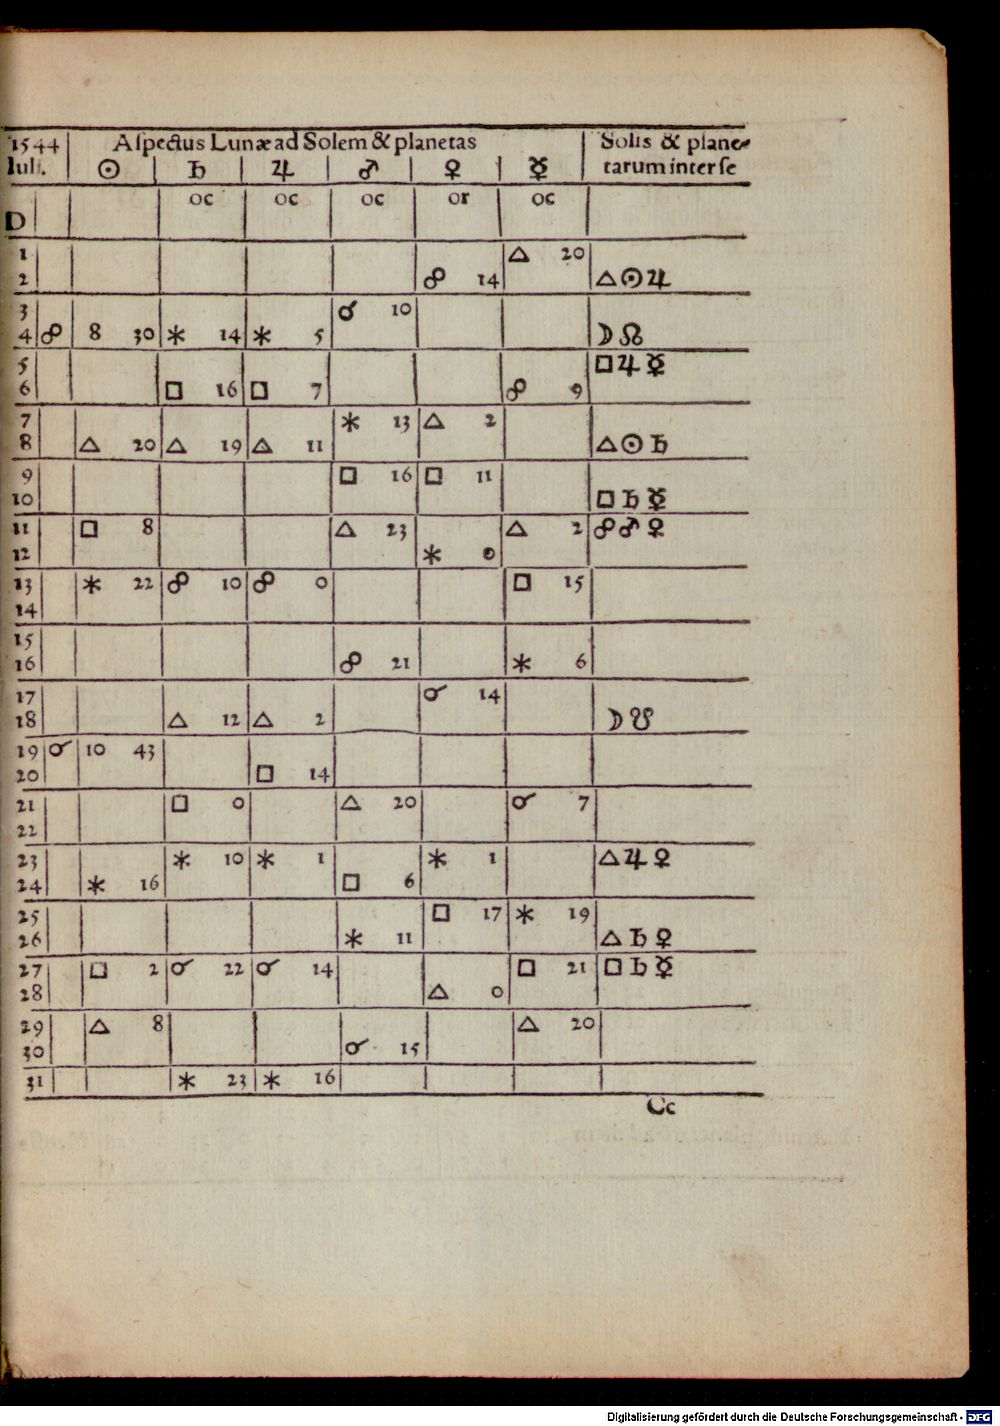 1544 Aſpectus Lunæ ad Solem & planetas Solis & plane-
Iuli. ☉ ♄ ♃ ♂ ♀ ☿ tarum inter ſe
D oc oc oc or oc
1 △ 20
2 ☍ 14 △ ☉ ♃
3 ☌ 10
4 ☍ 8 30 ⚹ 14 ⚹ 5 ☽ ☊
5 □ ♃ ☿
6 □ 16 □ 7 ☍ 9
7 ⚹ 13 △ 2
8 △ 20 △ 19 △ 11 △ ☉ ♄
9 □ 16 □ 11
10 □ ♄ ☿
11 □ 8 △ 23 △ 2 ☍ ♂ ♀
12 ⚹ 0
13 ⚹ 22 ☍ 10 ☍ 0 □ 15
14
15
16 ☍ 21 ⚹ 6
17 ☌ 14
18 △ 12 △ 2 ☽ ☋
19 ☌ 10 43
20 □ 14
21 □ 0 △ 20 ☌ 7
22
23 ⚹ 10 ⚹ 1 ⚹ 1 △ ♃ ♀
24 ⚹ 16 □ 6
25 □ 17 ⚹ 19
26 ⚹ 11 △ ♄ ♀
27 □ 2 ☌ 22 ☌ 14 □ 21 □ ♄ ☿
28 △ 0
29 △ 8 △ 20
30 ☌ 15
31 ⚹ 23 ⚹ 16
Cc
Digitalisierung gefördert durch die Deutsche Forschungsgemeinschaft - DFG